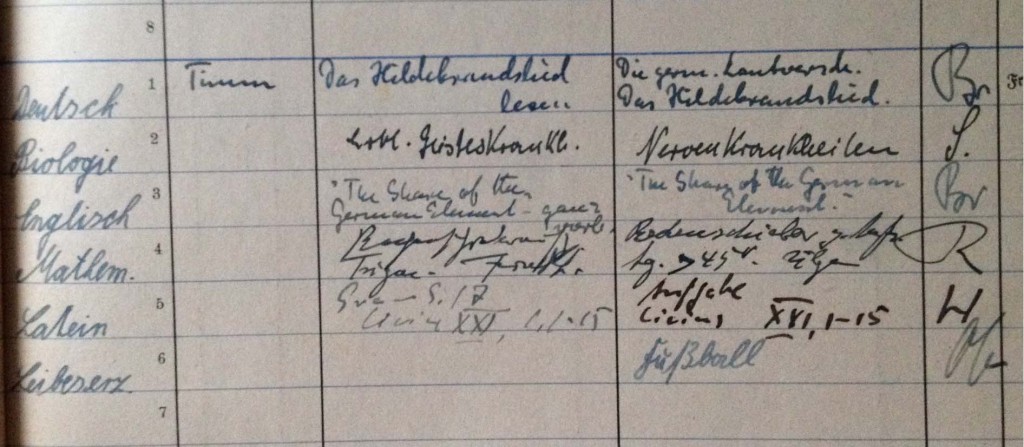 8
Deutsch 1 Timm Das Hildebrandslied Die germ. Lautversch. Br
lesen Das Hildebrandslied.
Biologie 2 erbl. Geisteskrankh. Nervenkrankheiten S.
Englisch 3 "The Share of the "The Share of the German Br
German Element - ganz Element."
Mathem. 4 Rechenschieber R
Trigon. - Funkt.
Latein 5 S. 17 Aufgabe H
Livius XXI, 1, 1-15 Livius XXI, 1-15
Leibeserz. 6 Fußball
7